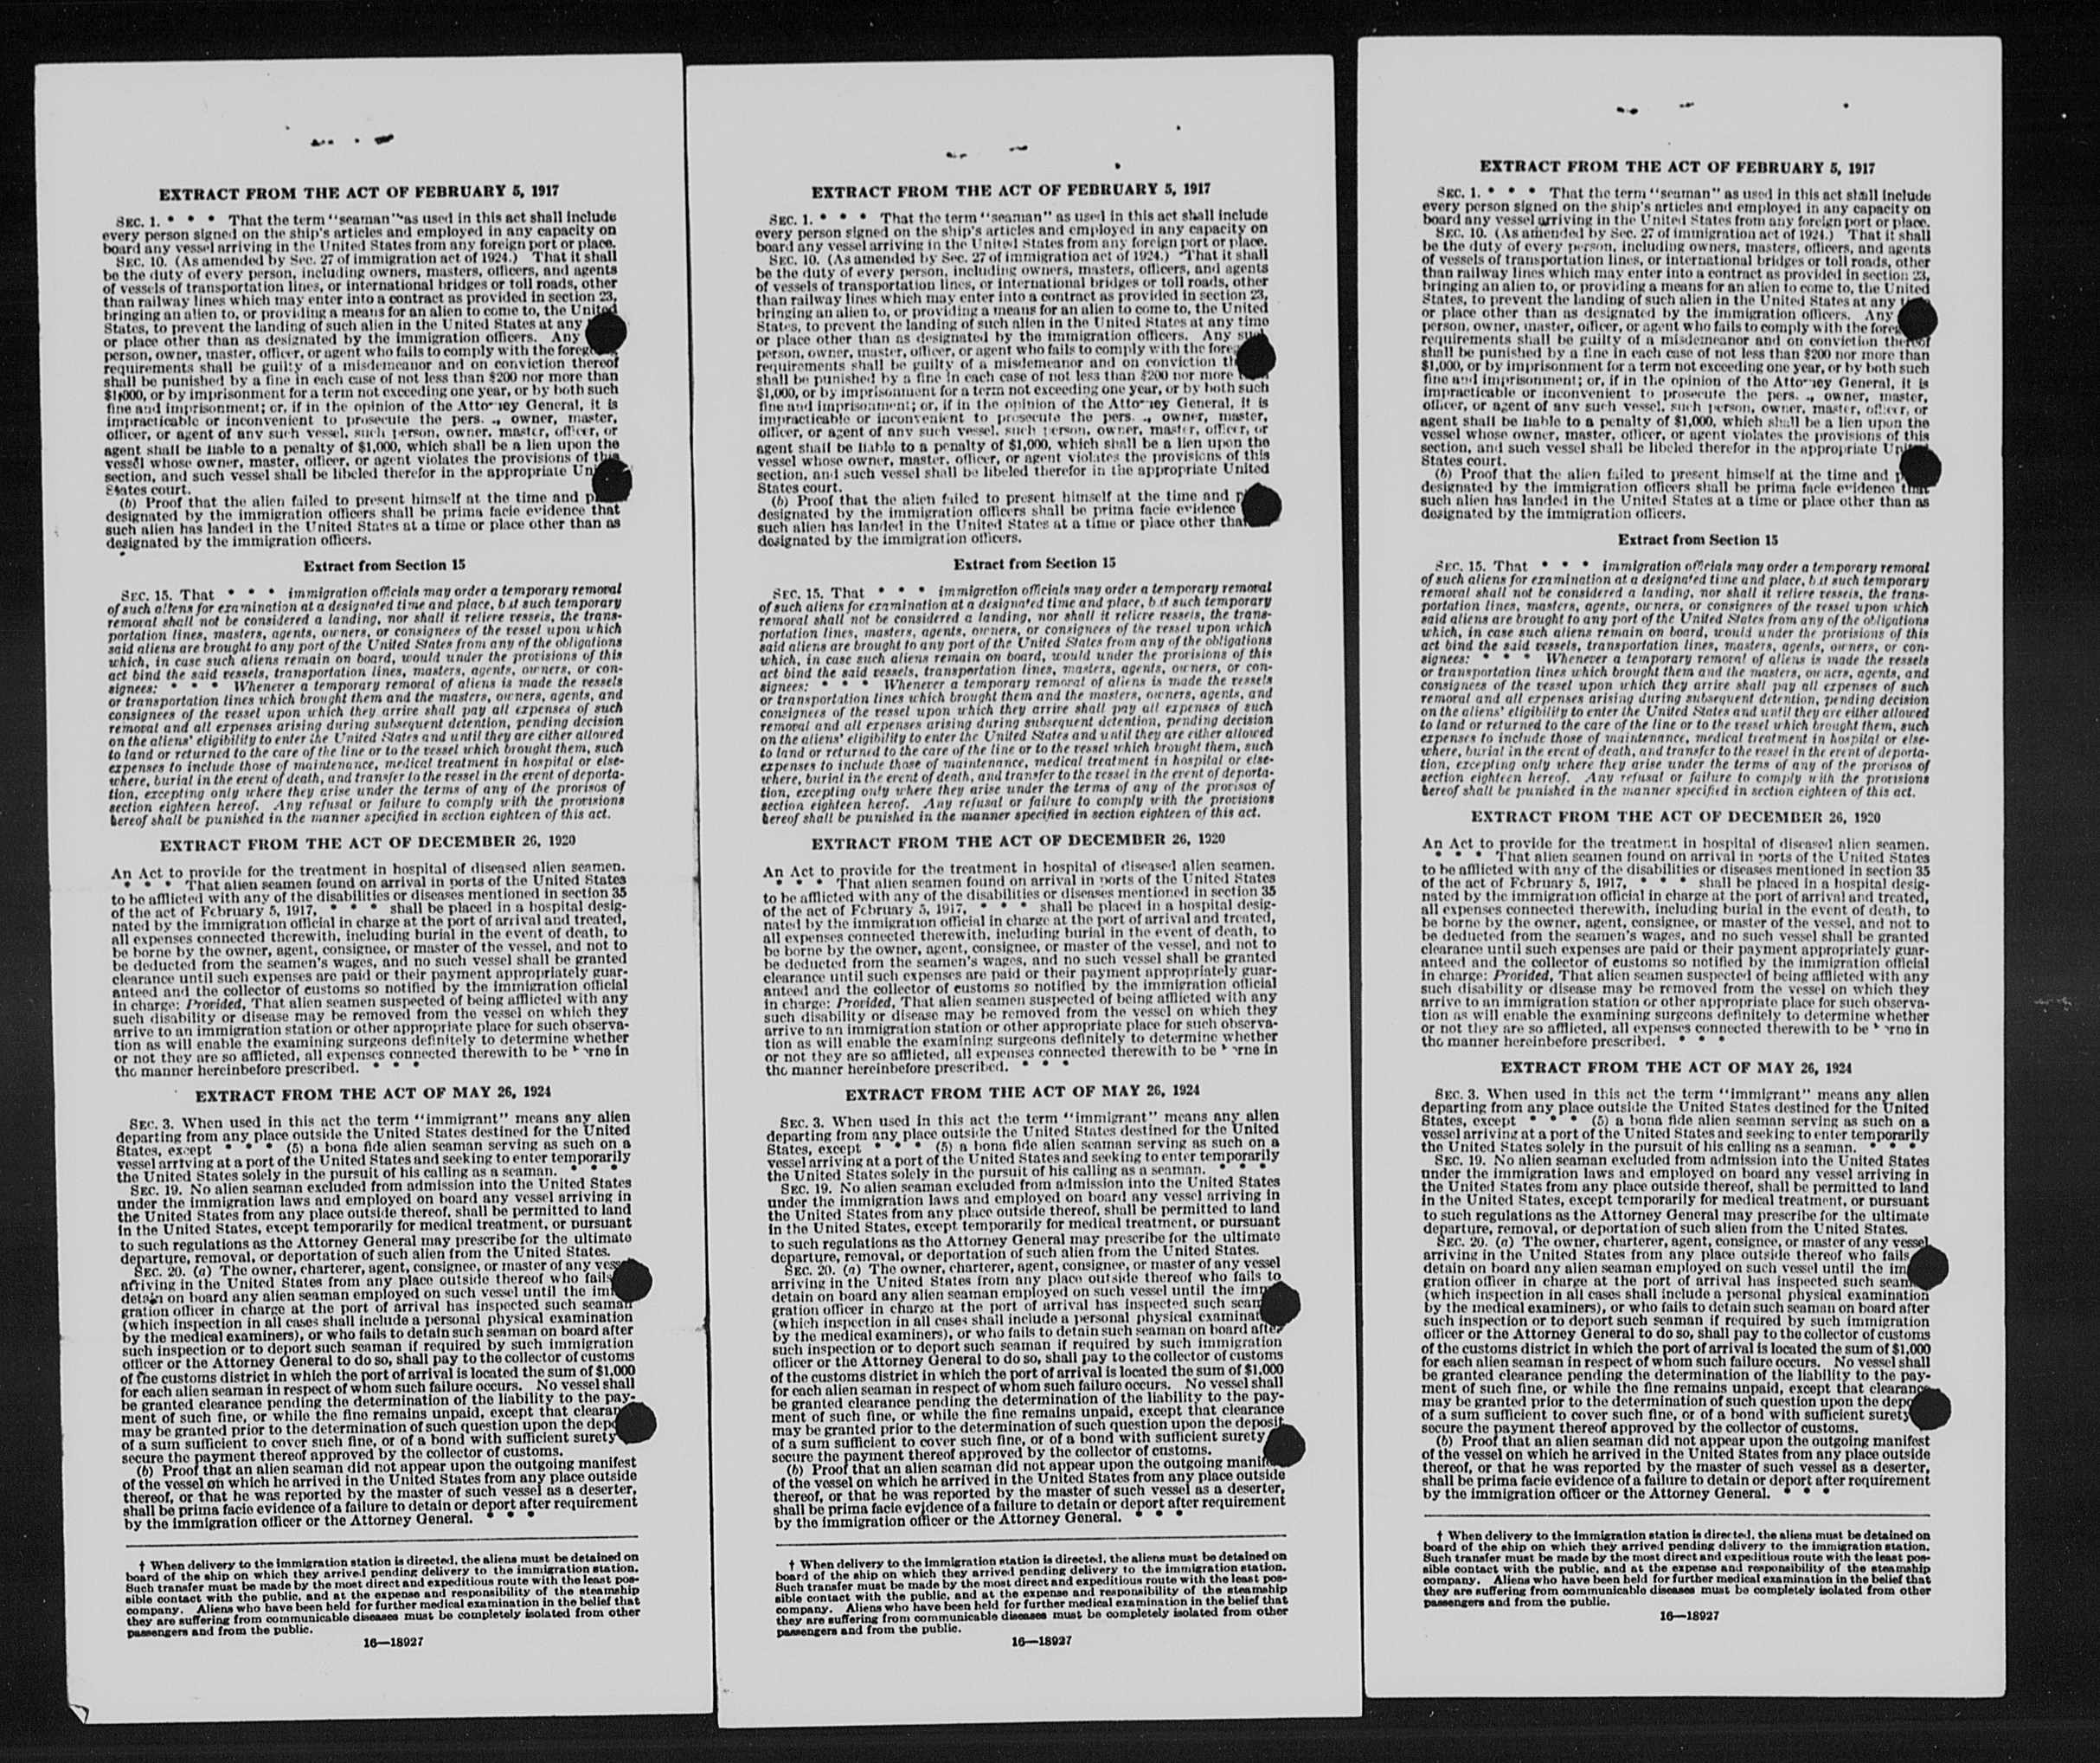 EXTRACT FROM THE ACT OF FEBRUARY 5, 1917
SEC. 1. * * * That the term "seaman" as used in this act shall include
every person signed on the ship's articles and employed in any capacity on
board any vessel arriving in the United States from any foreign port or place.
SEC. 10. (As amended by Sec. 27 of immigration act of 1924.) That it shall
be the duty of every person, including owners, masters, officers, and agents
of vessels of transportation lines, or international bridges or toll roads, other
than railway lines which may enter into a contract as provided in section 23,
bringing an alien to, or providing a means for an alien to come to, the United
States, to prevent the landing of such alien in the United States at any
or place other than as designated by the immigration officers. Any
person, owner, master, officer, or agent who fails to comply with the
requirements shall be guilty of a misdemeanor and on conviction thereof
shall be punished by a fine in each case of not less than $200 nor more than
$1,000, or by imprisonment for a term not exceeding one year, or by both such
fine and imprisonment; or, if in the opinion of the Atto ney General, it is
impracticable or inconvenient to prosecute the pers. ., owner, master,
officer, or agent of any such vessel, such person, owner, master, officer, or
agent shall be liable to a penalty of $1,000, which shall be a lien upon the
vessel whose owner, master, officer, or agent violates the provisions of this
section, and such vessel shall be libeled therefor in the appropriate
States court.
(b) Proof that the alien failed to present himself at the time and
designated by the immigration officers shall be prima facie evidence that
such alien has landed in the United States at a time or place other than as
designated by the immigration officers.
Extract from Section 15
SEC. 15. That * * * immigration officials may order a temporary removal
of such aliens for examination at a designated time and place, but such temporary
removal shall not be considered a landing, nor shall it relieve vessels, the trans-
portation lines, masters, agents, owners, or consignees of the vessel upon which
said aliens are brought to any port of the United States from any of the obligations
which, in case such aliens remain on board, would under the provisions of this
act bind the said vessels, transportation lines, masters, agents, owners, or con-
signees: * * * Whenever a temporary removal of aliens is made the vessels
or transportation lines which brought them and the masters, owners, agents, and
consignees of the vessel upon which they arrive shall pay all expenses of such
removal and all expenses arising during subsequent detention, pending decision
on the aliens' eligibility to enter the United States and until they are either allowed
to land or returned to the care of the line or to the vessel which brought them, such
expenses to include those of maintenance, medical treatment in hospital or else-
where, burial in the event of death, and transfer to the vessel in the event of deporta-
tion, excepting only where they arise under the terms of any of the provisos of
section eighteen hereof. Any refusal or failure to comply with the provisions
hereof shall be punished in the manner specified in section eighteen of this act.
EXTRACT FROM THE ACT OF DECEMBER 26, 1920
An Act to provide for the treatment in hospital of diseased alien seamen.
* * * That alien seamen found on arrival in ports of the United States
to be afflicted with any of the disabilities or diseases mentioned in section 35
of the act of February 5, 1917, * * * shall be placed in a hospital desig-
nated by the immigration official in charge at the port of arrival and treated,
all expenses connected therewith, including burial in the event of death, to
be borne by the owner, agent, consignee, or master of the vessel, and not to
be deducted from the seamen's wages, and no such vessel shall be granted
clearance until such expenses are paid or their payment appropriately guar-
anteed and the collector of customs so notified by the immigration official
in charge: Provided, That alien seamen suspected of being afflicted with any
such disability or disease may be removed from the vessel on which they
arrive to an immigration station or other appropriate place for such observa-
tion as will enable the examining surgeons definitely to determine whether
or not they are so afflicted, all expenses connected therewith to be rne in
the manner hereinbefore prescribed. * * *
EXTRACT FROM THE ACT OF MAY 26, 1924
SEC. 3. When used in this act the term "immigrant" means any alien
departing from any place outside the United States destined for the United
States, except * * * (5) a bona fide alien seaman serving as such on a
vessel arriving at a port of the United States and seeking to enter temporarily
the United States solely in the pursuit of his calling as a seaman. * * *
SEC. 19. No alien seaman excluded from admission into the United States
under the immigration laws and employed on board any vessel arriving in
the United States from any place outside thereof, shall be permitted to land
in the United States, except temporarily for medical treatment, or pursuant
to such regulations as the Attorney General may prescribe for the ultimate
departure, removal, or deportation of such alien from the United States.
SEC. 20. (a) The owner, charterer, agent, consignee, or master of any vessel
arriving in the United States from any place outside thereof who fails
detain on board any alien seaman employed on such vessel until the
gration officer in charge at the port of arrival has inspected such seaman
(which inspection in all cases shall include a personal physical examination
by the medical examiners), or who fails to detain such seaman on board after
such inspection or to deport such seaman if required by such immigration
officer or the Attorney General to do so, shall pay to the collector of customs
of the customs district in which the port of arrival is located the sum of $1,000
for each alien seaman in respect of whom such failure occurs. No vessel shall
be granted clearance pending the determination of the liability to the pay-
ment of such fine, or while the fine remains unpaid, except that clearance
may be granted prior to the determination of such question upon the
of a sum sufficient to cover such fine, or of a bond with sufficient surety
secure the payment thereof approved by the collector of customs.
(b) Proof that an alien seaman did not appear upon the outgoing manifest
of the vessel on which he arrived in the United States from any place outside
thereof, or that he was reported by the master of such vessel as a deserter,
shall be prima facie evidence of a failure to detain or deport after requirement
by the immigration officer or the Attorney General. * * *
† When delivery to the immigration station is directed, the aliens must be detained on
board of the ship on which they arrived pending delivery to the immigration station.
Such transfer must be made by the most direct and expeditious route with the least pos-
sible contact with the public, and at the expense and responsibility of the steamship
company. Aliens who have been held for further medical examination in the belief that
they are suffering from communicable diseases must be completely isolated from other
passengers and from the public.
16—18927
EXTRACT FROM THE ACT OF FEBRUARY 5, 1917
SEC. 1. * * * That the term "seaman" as used in this act shall include
every person signed on the ship's articles and employed in any capacity on
board any vessel arriving in the United States from any foreign port or place.
SEC. 10. (As amended by Sec. 27 of immigration act of 1924.) That it shall
be the duty of every person, including owners, masters, officers, and agents
of vessels of transportation lines, or international bridges or toll roads, other
than railway lines which may enter into a contract as provided in section 23,
bringing an alien to, or providing a means for an alien to come to, the United
States, to prevent the landing of such alien in the United States at any time
or place other than as designated by the immigration officers. Any such
person, owner, master, officer, or agent who fails to comply with the
requirements shall be guilty of a misdemeanor and on conviction
shall be punished by a fine in each case of not less than $200 nor more
$1,000, or by imprisonment for a term not exceeding one year, or by both such
fine and imprisonment; or, if in the opinion of the Atto ney General, it is
impracticable or inconvenient to prosecute the pers. ., owner, master,
officer, or agent of any such vessel, such person, owner, master, officer, or
agent shall be liable to a penalty of $1,000, which shall be a lien upon the
vessel whose owner, master, officer, or agent violates the provisions of this
section, and such vessel shall be libeled therefor in the appropriate United
States court.
(b) Proof that the alien failed to present himself at the time and
designated by the immigration officers shall be prima facie evidence
such alien has landed in the United States at a time or place other than
designated by the immigration officers.
Extract from Section 15
SEC. 15. That * * * immigration officials may order a temporary removal
of such aliens for examination at a designated time and place, but such temporary
removal shall not be considered a landing, nor shall it relieve vessels, the trans-
portation lines, masters, agents, owners, or consignees of the vessel upon which
said aliens are brought to any port of the United States from any of the obligations
which, in case such aliens remain on board, would under the provisions of this
act bind the said vessels, transportation lines, masters, agents, owners, or con-
signees: * * * Whenever a temporary removal of aliens is made the vessels
or transportation lines which brought them and the masters, owners, agents, and
consignees of the vessel upon which they arrive shall pay all expenses of such
removal and all expenses arising during subsequent detention, pending decision
on the aliens' eligibility to enter the United States and until they are either allowed
to land or returned to the care of the line or to the vessel which brought them, such
expenses to include those of maintenance, medical treatment in hospital or else-
where, burial in the event of death, and transfer to the vessel in the event of deporta-
tion, excepting only where they arise under the terms of any of the provisos of
section eighteen hereof. Any refusal or failure to comply with the provisions
hereof shall be punished in the manner specified in section eighteen of this act.
EXTRACT FROM THE ACT OF DECEMBER 26, 1920
An Act to provide for the treatment in hospital of diseased alien seamen.
* * * That alien seamen found on arrival in ports of the United States
to be afflicted with any of the disabilities or diseases mentioned in section 35
of the act of February 5, 1917, * * * shall be placed in a hospital desig-
nated by the immigration official in charge at the port of arrival and treated,
all expenses connected therewith, including burial in the event of death, to
be borne by the owner, agent, consignee, or master of the vessel, and not to
be deducted from the seamen's wages, and no such vessel shall be granted
clearance until such expenses are paid or their payment appropriately guar-
anteed and the collector of customs so notified by the immigration official
in charge: Provided, That alien seamen suspected of being afflicted with any
such disability or disease may be removed from the vessel on which they
arrive to an immigration station or other appropriate place for such observa-
tion as will enable the examining surgeons definitely to determine whether
or not they are so afflicted, all expenses connected therewith to be rne in
the manner hereinbefore prescribed. * * *
EXTRACT FROM THE ACT OF MAY 26, 1924
SEC. 3. When used in this act the term "immigrant" means any alien
departing from any place outside the United States destined for the United
States, except * * * (5) a bona fide alien seaman serving as such on a
vessel arriving at a port of the United States and seeking to enter temporarily
the United States solely in the pursuit of his calling as a seaman. * * *
SEC. 19. No alien seaman excluded from admission into the United States
under the immigration laws and employed on board any vessel arriving in
the United States from any place outside thereof, shall be permitted to land
in the United States, except temporarily for medical treatment, or pursuant
to such regulations as the Attorney General may prescribe for the ultimate
departure, removal, or deportation of such alien from the United States.
SEC. 20. (a) The owner, charterer, agent, consignee, or master of any vessel
arriving in the United States from any place outside thereof who fails to
detain on board any alien seaman employed on such vessel until the
gration officer in charge at the port of arrival has inspected such
(which inspection in all cases shall include a personal physical
by the medical examiners), or who fails to detain such seaman on board after
such inspection or to deport such seaman if required by such immigration
officer or the Attorney General to do so, shall pay to the collector of customs
of the customs district in which the port of arrival is located the sum of $1,000
for each alien seaman in respect of whom such failure occurs. No vessel shall
be granted clearance pending the determination of the liability to the pay-
ment of such fine, or while the fine remains unpaid, except that clearance
may be granted prior to the determination of such question upon the deposit
of a sum sufficient to cover such fine, or of a bond with sufficient surety
secure the payment thereof approved by the collector of customs.
(b) Proof that an alien seaman did not appear upon the outgoing
of the vessel on which he arrived in the United States from any place outside
thereof, or that he was reported by the master of such vessel as a deserter,
shall be prima facie evidence of a failure to detain or deport after requirement
by the immigration officer or the Attorney General. * * *
† When delivery to the immigration station is directed, the aliens must be detained on
board of the ship on which they arrived pending delivery to the immigration station.
Such transfer must be made by the most direct and expeditious route with the least pos-
sible contact with the public, and at the expense and responsibility of the steamship
company. Aliens who have been held for further medical examination in the belief that
they are suffering from communicable diseases must be completely isolated from other
passengers and from the public.
16—18927
EXTRACT FROM THE ACT OF FEBRUARY 5, 1917
SEC. 1. * * * That the term "seaman" as used in this act shall include
every person signed on the ship's articles and employed in any capacity on
board any vessel arriving in the United States from any foreign port or place.
SEC. 10. (As amended by Sec. 27 of immigration act of 1924.) That it shall
be the duty of every person, including owners, masters, officers, and agents
of vessels of transportation lines, or international bridges or toll roads, other
than railway lines which may enter into a contract as provided in section 23,
bringing an alien to, or providing a means for an alien to come to, the United
States, to prevent the landing of such alien in the United States at any
or place other than as designated by the immigration officers. Any
person, owner, master, officer, or agent who fails to comply with the
requirements shall be guilty of a misdemeanor and on conviction thereof
shall be punished by a fine in each case of not less than $200 nor more than
$1,000, or by imprisonment for a term not exceeding one year, or by both such
fine and imprisonment; or, if in the opinion of the Atto ney General, it is
impracticable or inconvenient to prosecute the pers. ., owner, master,
officer, or agent of any such vessel, such person, owner, master, officer, or
agent shall be liable to a penalty of $1,000, which shall be a lien upon the
vessel whose owner, master, officer, or agent violates the provisions of this
section, and such vessel shall be libeled therefor in the appropriate United
States court.
(b) Proof that the alien failed to present himself at the time and
designated by the immigration officers shall be prima facie evidence that
such alien has landed in the United States at a time or place other than as
designated by the immigration officers.
Extract from Section 15
SEC. 15. That * * * immigration officials may order a temporary removal
of such aliens for examination at a designated time and place, but such temporary
removal shall not be considered a landing, nor shall it relieve vessels, the trans-
portation lines, masters, agents, owners, or consignees of the vessel upon which
said aliens are brought to any port of the United States from any of the obligations
which, in case such aliens remain on board, would under the provisions of this
act bind the said vessels, transportation lines, masters, agents, owners, or con-
signees: * * * Whenever a temporary removal of aliens is made the vessels
or transportation lines which brought them and the masters, owners, agents, and
consignees of the vessel upon which they arrive shall pay all expenses of such
removal and all expenses arising during subsequent detention, pending decision
on the aliens' eligibility to enter the United States and until they are either allowed
to land or returned to the care of the line or to the vessel which brought them, such
expenses to include those of maintenance, medical treatment in hospital or else-
where, burial in the event of death, and transfer to the vessel in the event of deporta-
tion, excepting only where they arise under the terms of any of the provisos of
section eighteen hereof. Any refusal or failure to comply with the provisions
hereof shall be punished in the manner specified in section eighteen of this act.
EXTRACT FROM THE ACT OF DECEMBER 26, 1920
An Act to provide for the treatment in hospital of diseased alien seamen.
* * * That alien seamen found on arrival in ports of the United States
to be afflicted with any of the disabilities or diseases mentioned in section 35
of the act of February 5, 1917, * * * shall be placed in a hospital desig-
nated by the immigration official in charge at the port of arrival and treated,
all expenses connected therewith, including burial in the event of death, to
be borne by the owner, agent, consignee, or master of the vessel, and not to
be deducted from the seamen's wages, and no such vessel shall be granted
clearance until such expenses are paid or their payment appropriately guar-
anteed and the collector of customs so notified by the immigration official
in charge: Provided, That alien seamen suspected of being afflicted with any
such disability or disease may be removed from the vessel on which they
arrive to an immigration station or other appropriate place for such observa-
tion as will enable the examining surgeons definitely to determine whether
or not they are so afflicted, all expenses connected therewith to be rne in
the manner hereinbefore prescribed. * * *
EXTRACT FROM THE ACT OF MAY 26, 1924
SEC. 3. When used in this act the term "immigrant" means any alien
departing from any place outside the United States destined for the United
States, except * * * (5) a bona fide alien seaman serving as such on a
vessel arriving at a port of the United States and seeking to enter temporarily
the United States solely in the pursuit of his calling as a seaman. * * *
SEC. 19. No alien seaman excluded from admission into the United States
under the immigration laws and employed on board any vessel arriving in
the United States from any place outside thereof, shall be permitted to land
in the United States, except temporarily for medical treatment, or pursuant
to such regulations as the Attorney General may prescribe for the ultimate
departure, removal, or deportation of such alien from the United States.
SEC. 20. (a) The owner, charterer, agent, consignee, or master of any vessel
arriving in the United States from any place outside thereof who fails
detain on board any alien seaman employed on such vessel until the
gration officer in charge at the port of arrival has inspected such
(which inspection in all cases shall include a personal physical examination
by the medical examiners), or who fails to detain such seaman on board after
such inspection or to deport such seaman if required by such immigration
officer or the Attorney General to do so, shall pay to the collector of customs
of the customs district in which the port of arrival is located the sum of $1,000
for each alien seaman in respect of whom such failure occurs. No vessel shall
be granted clearance pending the determination of the liability to the pay-
ment of such fine, or while the fine remains unpaid, except that clearance
may be granted prior to the determination of such question upon the
of a sum sufficient to cover such fine, or of a bond with sufficient surety
secure the payment thereof approved by the collector of customs.
(b) Proof that an alien seaman did not appear upon the outgoing manifest
of the vessel on which he arrived in the United States from any place outside
thereof, or that he was reported by the master of such vessel as a deserter,
shall be prima facie evidence of a failure to detain or deport after requirement
by the immigration officer or the Attorney General. * * *
† When delivery to the immigration station is directed, the aliens must be detained on
board of the ship on which they arrived pending delivery to the immigration station.
Such transfer must be made by the most direct and expeditious route with the least pos-
sible contact with the public, and at the expense and responsibility of the steamship
company. Aliens who have been held for further medical examination in the belief that
they are suffering from communicable diseases must be completely isolated from other
passengers and from the public.
16—18927